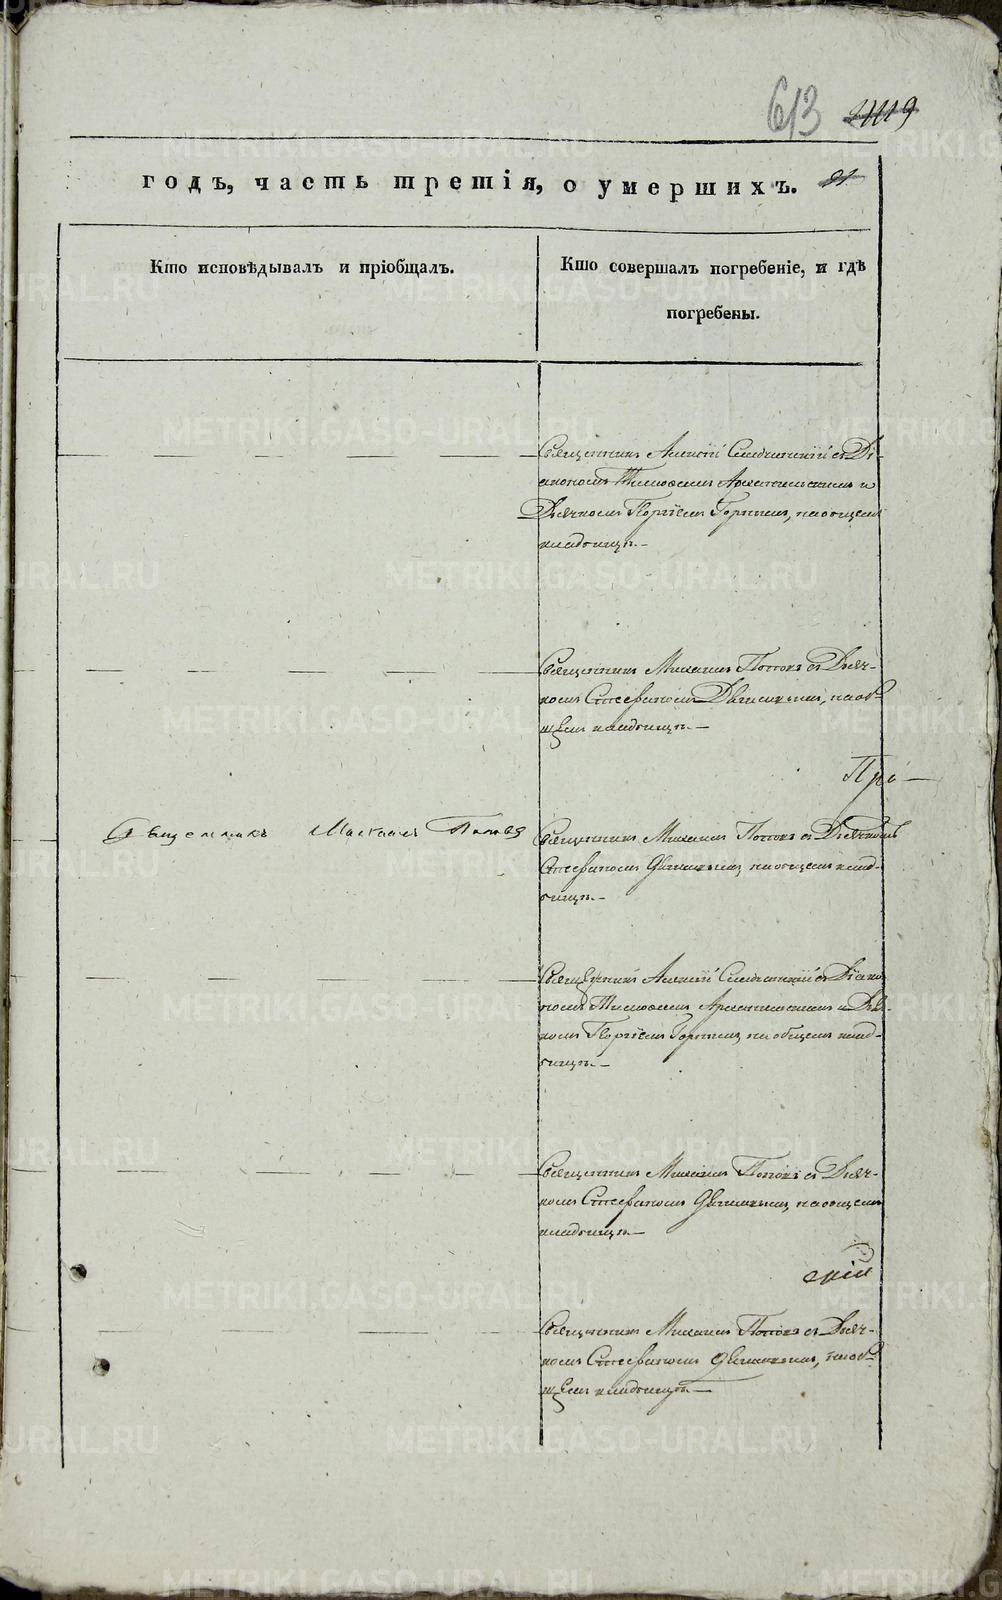 613
годъ, часть третія, о умершихъ.
Кто исповѣдывалъ и пріобщалъ.
Кто совершалъ погребеніе, и гдѣ
погребены.
Священникъ Алексій с Ді-
акономъ Тимофеемъ и
Дьячкомъ Георгіемъ Горнымъ, на общемъ
кладбищѣ.-
Священникъ Михаилъ Поповъ съ Дьяч-
комъ Стефаномъ на об-
щемъ кладбищѣ.-
При-
Священникъ Михаилъ Поповъ
Священникъ Михаилъ Поповъ съ Дьячкомъ
Стефаномъ на общемъ клад-
бищѣ.-
Священникъ Алексій с Діако-
номъ Тимофеемъ и Дьяч-
комъ Георгіемъ Горнымъ на общемъ клад-
бищѣ.-
Священникъ Михаилъ Поповъ съ Дьяч-
комъ Стефаномъ на общемъ
кладбищѣ-
скій
Священникъ Михаилъ Поповъ съ Дьяч-
комъ Стефаномъ на об-
щемъ кладбищѣ.-
METRIKI.GASO-URAL.RU